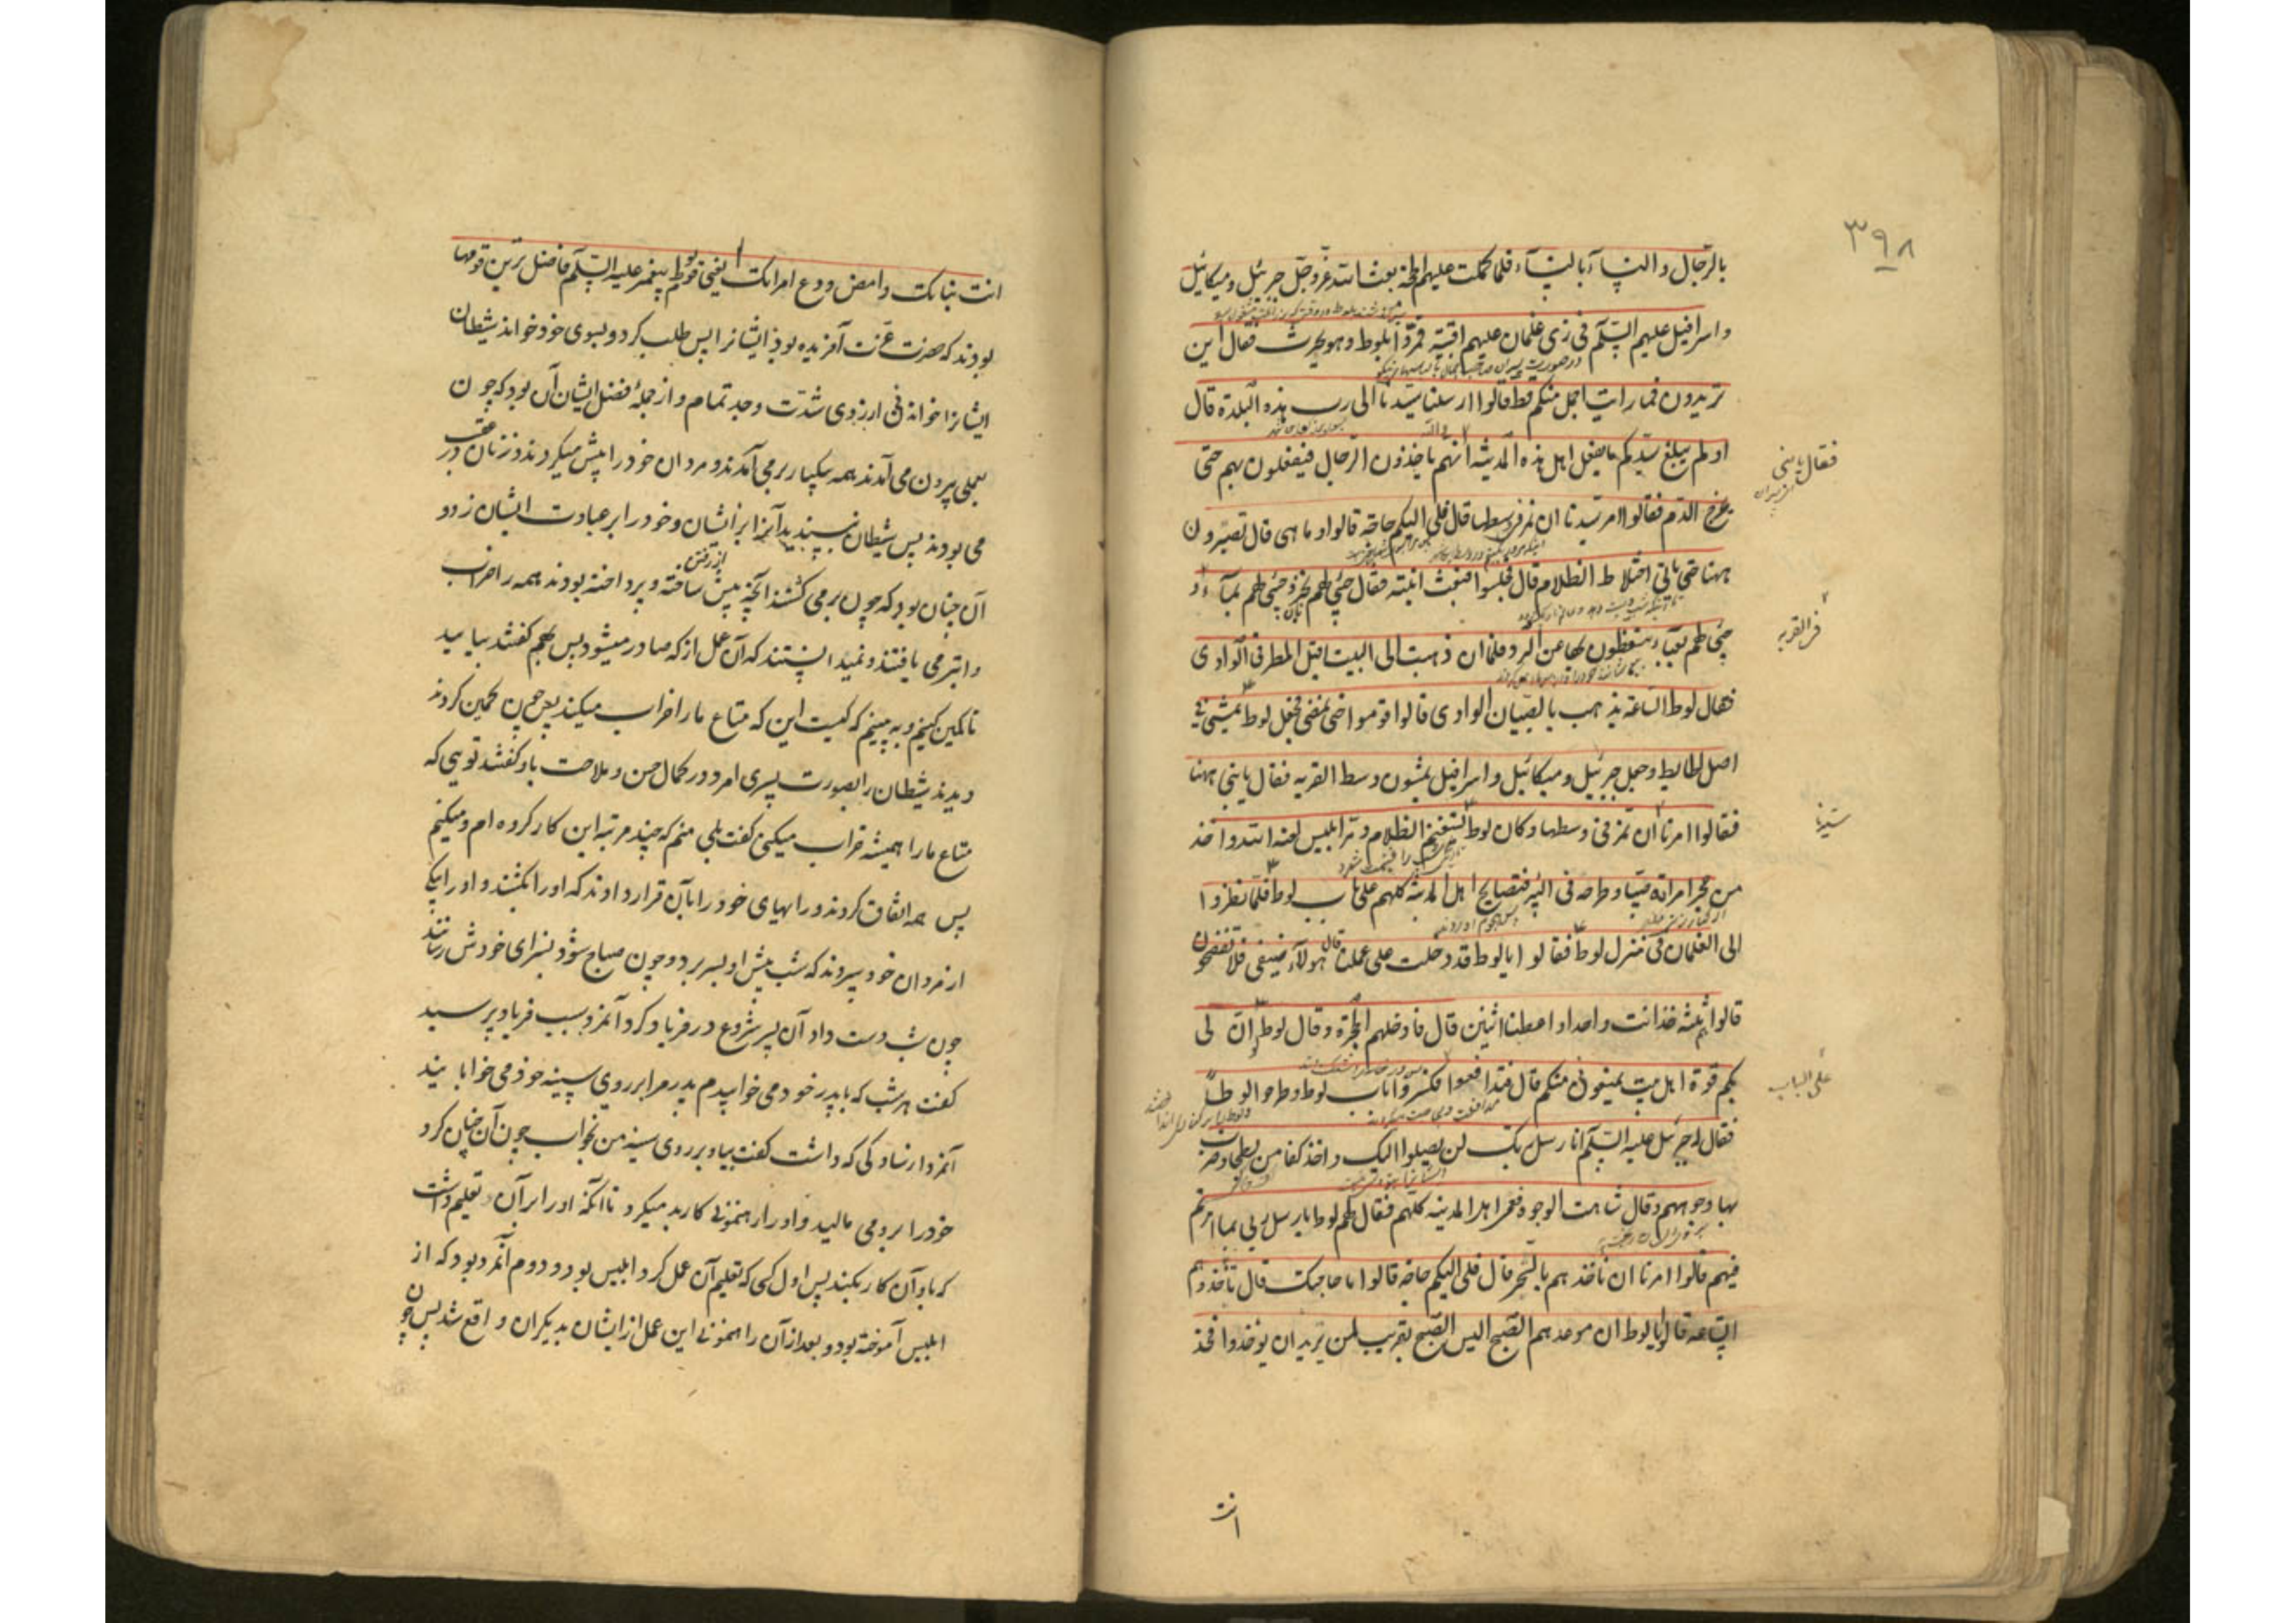 ٣٩٨
بالرجال والنساء بالنساء فلما كملت عليهم الحجة بعث الله عز وجل جبرئيل وميكائيل
واسرافيل عليهم السلام فى زى غلمان عليهم اقبية فمروا بلوط وهو يحرث فقال اين
تريدون فما رايت اجمل منكم قط قالوا ارسلنا سيدنا الى رب هذه البلدة قال
اولم يبلغ سيدكم ما يفعل اهل هذه المدينة انهم ياخذون الرجال فيفعلون بهم حتى
يخرج الدم فقالوا امر سيدنا ان نمر فى وسطها قال فلى اليكم حاجة قالوا وما هى قال تصبرون
ههنا حتى ياتى اختلاط الظلام قال فجلسوا فبعث ابنته فقال جيئى لهم بخبز وجيئى لهم بماء و
جيئى لهم بعباء يتغطون بها من البرد فلما ان ذهبت الى البيت اقبل المطر فى الوادى
فقال لوط الساعة يذهب بالصبيان الوادى قالوا قوموا حتى نمضى فجعل لوط يمشى فى
اصل الحايط وجعل جبرئيل وميكائيل واسرافيل يمشون وسط القرية فقال يا بنى ههنا
فقالوا امرنا ان نمر فى وسطها وكان لوط يستغنم الظلام ومر ابليس لعنه الله واخذ
من حجر امراته صبيا وطرحه فى البئر فتصايح اهل المدينة كلهم على باب لوط فلما نظروا
الى الغلمان فى منزل لوط فقالوا يا لوط قد دخلت على عملنا قال هولاء ضيفى فلا تفضحون
قالوا ثلثة خذ انت واحدا واعطنا اثنين قال فادخلهم الحجرة وقال لوط ان لى
بكم قوة اهل بيت يمنعونى منكم قال فتدافعوا فكسروا باب لوط وطرحوا لوطا
فقال له جبرئيل عليه السلام انا رسل ربك لن يصلوا اليك واخذ كفا من بطحا وضرب
بها وجوههم وقال شاهت الوجوه فعمى اهل المدينة كلهم فقال لهم لوط يا رسل ربى بما امركم
فيهم قالوا امرنا ان ناخذهم بالسحر قال فلى اليكم حاجة قالوا ما حاجتك قال تاخذوهم
الساعة قالوا يا لوط ان موعدهم الصبح اليس الصبح بقريب لمن يريد ان يوخذوا فخذ
فقال يا بنى
سيدنا
على الباب
انت
انت بناتك وامض ودع امراتك يعنى قوم لوط پيغمبر عليه السلام فاضل ترين قومها
بودند كه حضرت عزت آفريده بود ايشانرا پس طلب كرد و بسوى خود خواند شيطان
ايشانرا خواندنى از روى شدت و جد تمام و از جملۀ فضل ايشان آن بود كه چون
بعملى بيرون مى آمدند همه بيكبار بر مى آمدند و مردان خود را پيش ميكردند و زنان در عقب
مى بودند پس شيطان نپسنديد آنرا بر ايشان و خود را بر عبادت ايشان زد و
آن چنان بود كه چون بر مى گشتند آنچه پيش از رفتن ساخته و پرداخته بودند همه را خراب
و ابتر مى يافتند و نميدانستند كه آن عمل از كه صادر ميشود پس بهم گفتند بياييد
تا كمين كنيم و به بينيم كه كيست اين كه متاع ما را خراب ميكند پس چون كمين كردند
ديدند شيطان را بصورت پسرى امرد در كمال حسن و ملاحت باو گفتند تويى كه
متاع ما را هميشه خراب ميكنى گفت بلى منم كه چند مرتبه اين كار كرده ام و ميكنم
پس همه اتفاق كردند و رايهاى خود را بآن قرار دادند كه او را بكشند و او را بيكى
از مردان خود سپردند كه شب پيش او بسر برد و چون صباح شود بسزاى خودش رسانند
چون شب دست داد آن پسر شروع در فرياد كرد آنمرد سبب فرياد پرسيد
گفت هر شب كه با پدر خود مى خوابيدم پدر مرا بر روى سينه خود مى خوابانيد
آنمرد از ساده كى كه داشت گفت بيا و بر روى سينه من بخواب چون آن چنان كرد
خود را برو مى ماليد و او را رهنمونى كار بد ميكرد تا آنكه او را بر آن تعليم داشت
كه باو آن كار بكند پس اول كسى كه تعليم آن عمل كرد ابليس بود و دوم آنمرد بود كه از
ابليس آموخته بود و بعد از آن راهنمونى اين عمل از ايشان بديكران واقع شد پس چون